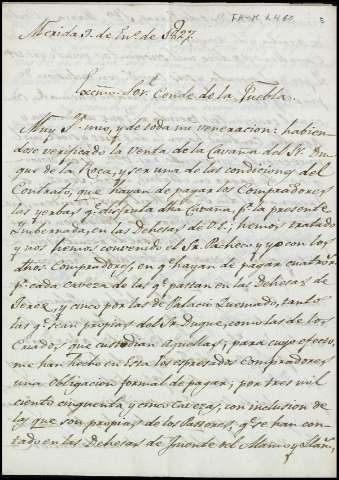 FA-M 2.460
Merida 9. de En.º de 1827.
Excmo. Sor. Conde de la Puebla.
Muy S.r mio, y de toda mi veneracion: habien
dose verificado la venta de la Cavaña del Sr. Du
que de la Roca, y ser una de las condiciones del
Contrato, que hayan de pagar los Compradores
las yerbas q.e disfruta dha Cavaña, p.r la presente
Imbernada, en las Dehesas de V.E; hemos tratado
y nos hemos convenido el Sr. Pacheco y yo con los
dhos Compradores, en q.e hayan de pagar cuatro r.s
p.r cada caveza de las q.e pastan en las Dehesas de
Jerez, y cinco por las de Palacio Quemado, tanto
las q.e sean propias del Sr. Duque, como las de los
Criados que custodian aquellas; para cuyo efecto,
me han hecho en esta los espresados compradores
una obligacion formal de pagar; por tres mil
ciento cinquenta y cinco cavezas, con inclusion de
las que son propias de los Pastores, q.e se han con
tado en las Dehesas de Fuente del Alamo y